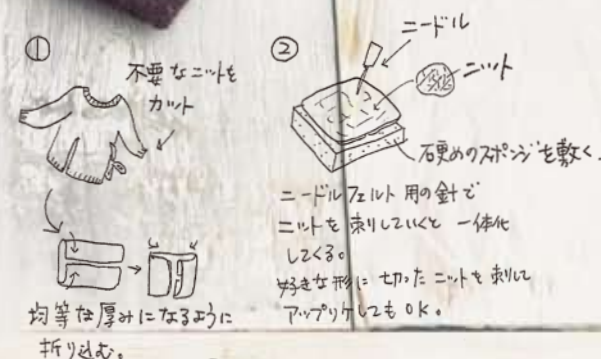 ①
不要なニットを
カット
均等な厚みになるように
折り込む。
②
ニードル
ニット
硬めのスポンジを敷く。
ニードルフェルト用の針で
ニットを刺していくと一体化
してくる。
好きな形に切ったニットを刺して
アップリケしてもOK。